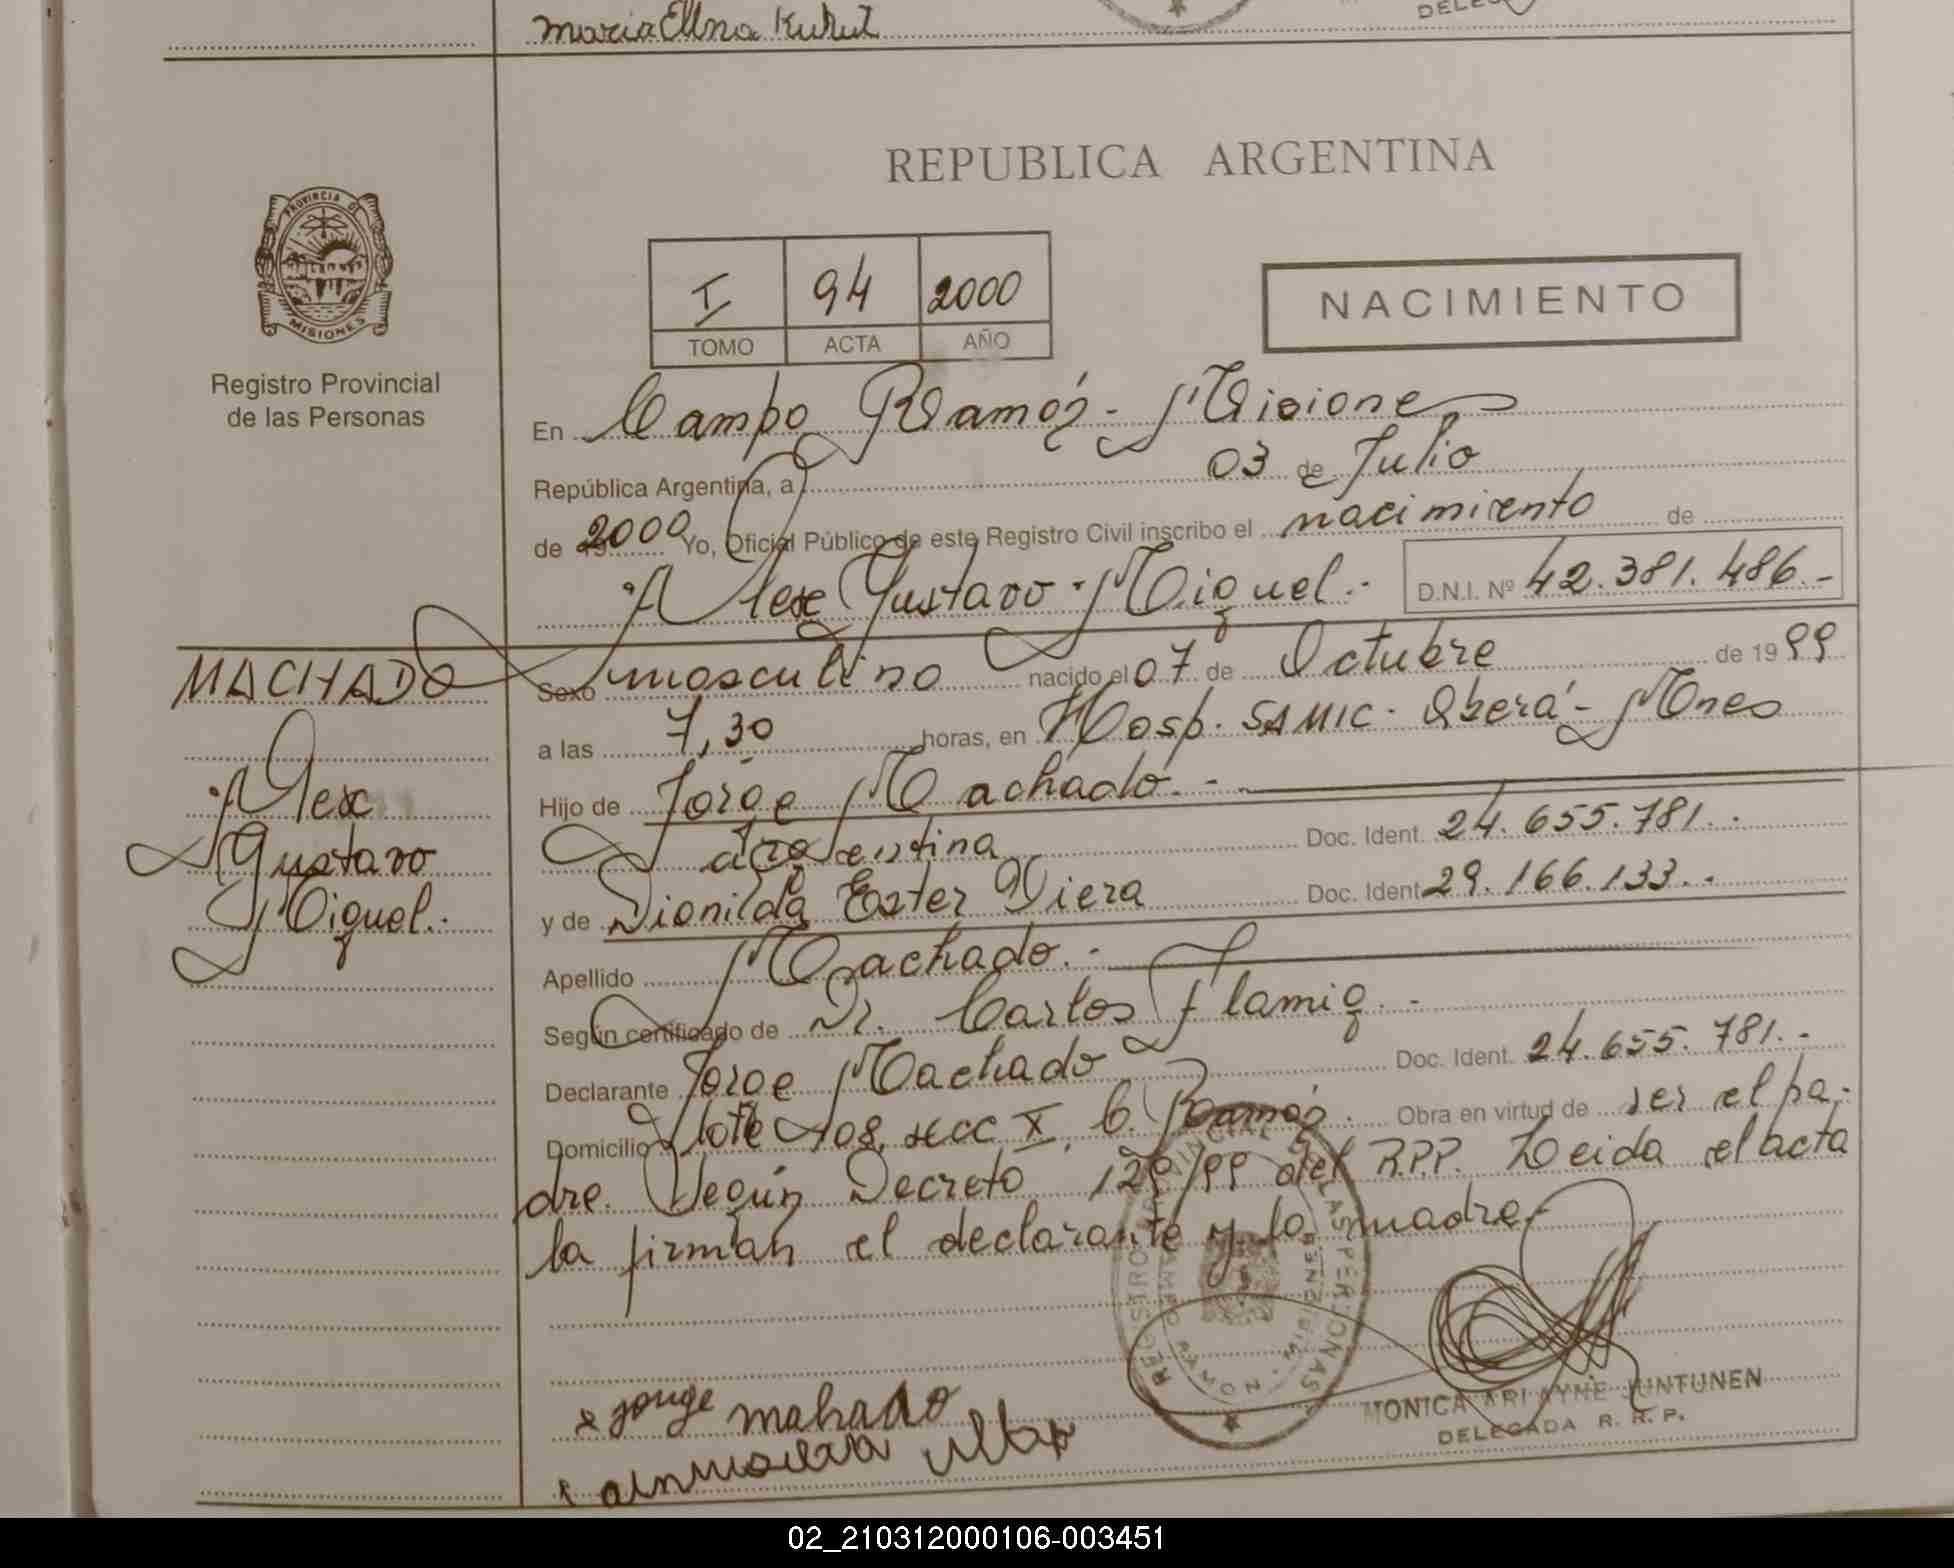 Maria Elena Kuhut
DELEG
REPUBLICA ARGENTINA
PROVINCIA DE
MISIONES
Registro Provincial
de las Personas
I 94 2000
TOMO ACTA AÑO
NACIMIENTO
En Campo Ramón - Misiones
República Argentina, a 03 de Julio
de 2000 Yo, Oficial Público de este Registro Civil inscribo el nacimiento de
Alex Gustavo Miguel.- D.N.I. Nº 42.381.486.-
MACHADO
Alex
Gustavo
Miguel.-
Sexo masculino nacido el 07 de Octubre de 1999
a las 7,30 horas, en Hosp. SAMIC - Oberá - Mnes
Hijo de Jorge Machado.-
argentina Doc. Ident. 24.655.781.-
y de Dionilda Ester Viera Doc. Ident 29.166.133.-
Apellido Machado.-
Según certificado de Dr. Carlos Flamig.-
Declarante Jorge Machado Doc. Ident. 24.655.781.-
Domicilio lote 108, secc X, C. Ramón. Obra en virtud de ser el pa-
dre. Según Decreto 129/99 del R.P.P. Leida el acta
la firman el declarante y la madre.-
REGISTRO PROVINCIAL DE LAS PERSONAS
CAMPO RAMON
jorge mahado
MONICA ARI AYNE JUNTUNEN
DELEGADA R. R. P.
02_210312000106-003451